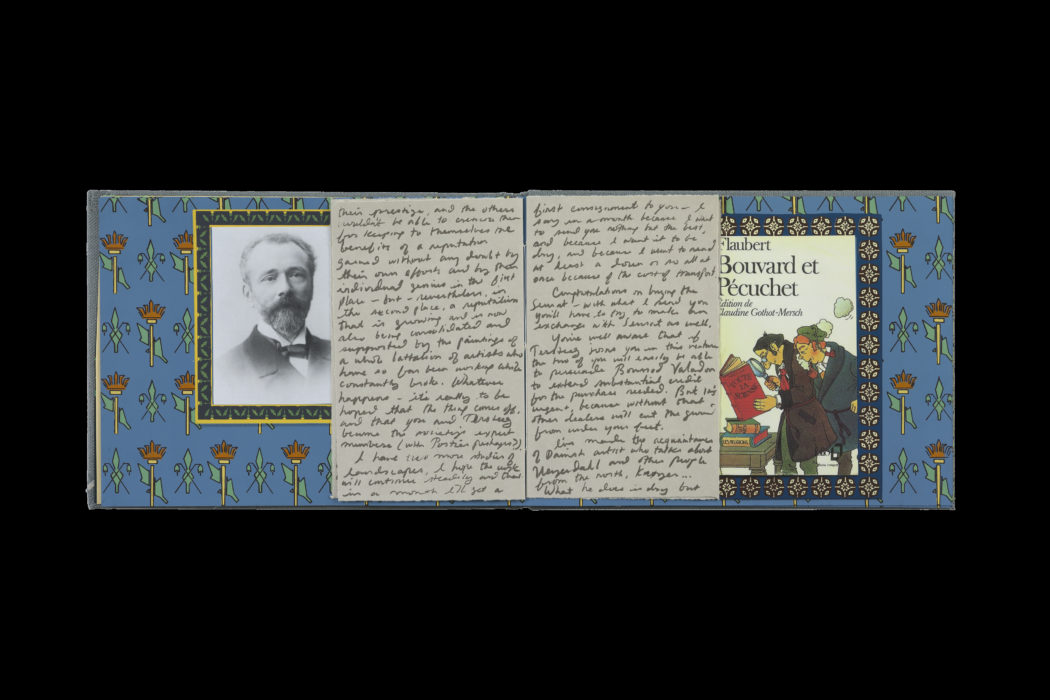 their prestige, and the others
wouldn't be able to censure them
for keeping to themselves the
benefits of a reputation
gained without any doubt by
their own efforts and by their
individual genius in the first
place – but – nevertheless, in
the second place, a reputation
that is growing and is now
also being consolidated and
supported by the paintings of
a whole battalion of artists who
have so far been working while
constantly broke. Whatever
happens – it's really to be
hoped that the thing comes off,
and that you and Tersteeg
become the society's expert
members (with Portier perhaps?)
I have two more studies of
landscapes, I hope the work
will continue steadily and that
in a month I'll get a
first consignment to you – I
say in a month because I want
to send you nothing but the best,
and because I want it to be
dry, and because I want to send
at least a dozen or so all at
once because of the cost of transport
Congratulations on buying the
Seurat – with what I send you
you'll have to try to make an
exchange with Seurat as well.
You're well aware that if
Tersteeg joins you in this venture
the two of you will easily be able
to persuade Boussod Valadon
to extend substantial credit
for the purchase needed. But it's
urgent, because without that
other dealers will cut the ground
from under your feet.
I've made the acquaintance
of Danish artist who talks about
Heyerdahl and other people
from the north, Krøyer...
What he does is dry but
Flaubert
Bouvard et
Pécuchet
Édition de
Claudine Gothot-Mersch
LES RELIGIONS